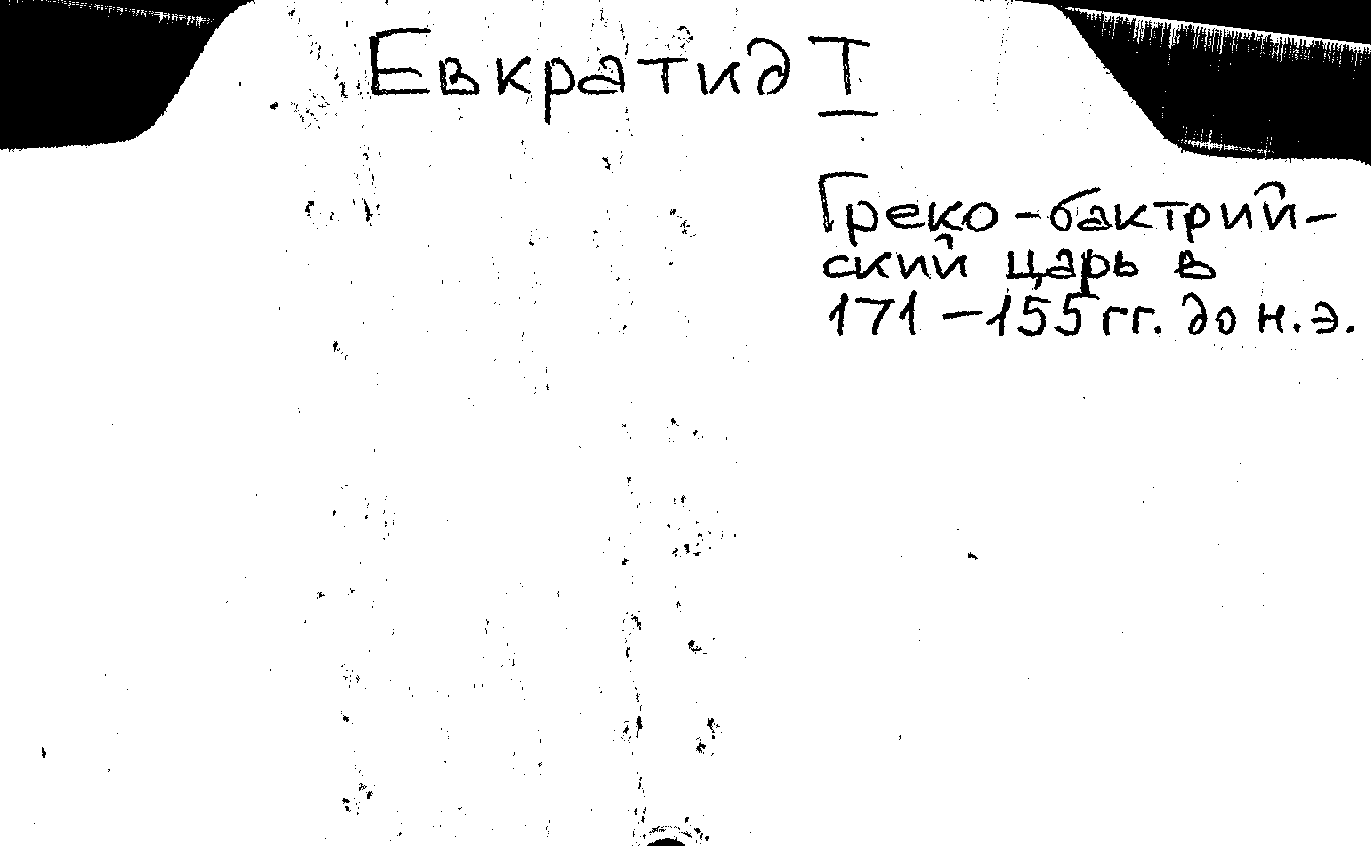 Евкратид I
Греко-бактрий-
ский царь в
171-155 гг. до н.э.